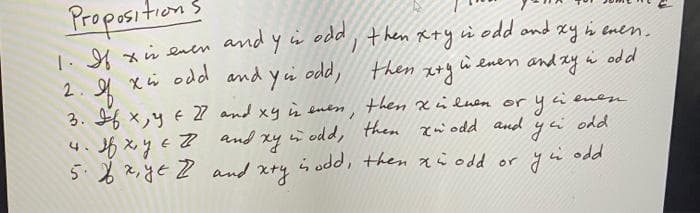 Propositions
1. If x is even and y is odd, then x+y is odd and xy is even.
2. If x is odd and y is odd, then x+y is even and xy is odd
3. If x,y ∈ ℤ and xy is even, then x is even or y is even
4. If x,y ∈ ℤ and xy is odd, then x is odd and y is odd
5. If x,y ∈ ℤ and x+y is odd, then x is odd or y is odd